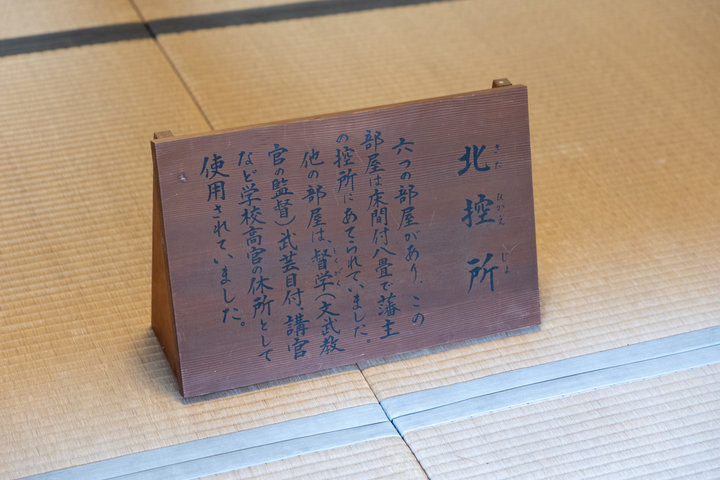 北控所
きた ひかえ じょ
六つの部屋があり、この
部屋は床間付八畳で藩主
の控所にあてられていました。
他の部屋は、督学(文武教
とくがく
官の監督)武芸目付、講官
など学校高官の休所として
使用されていました。